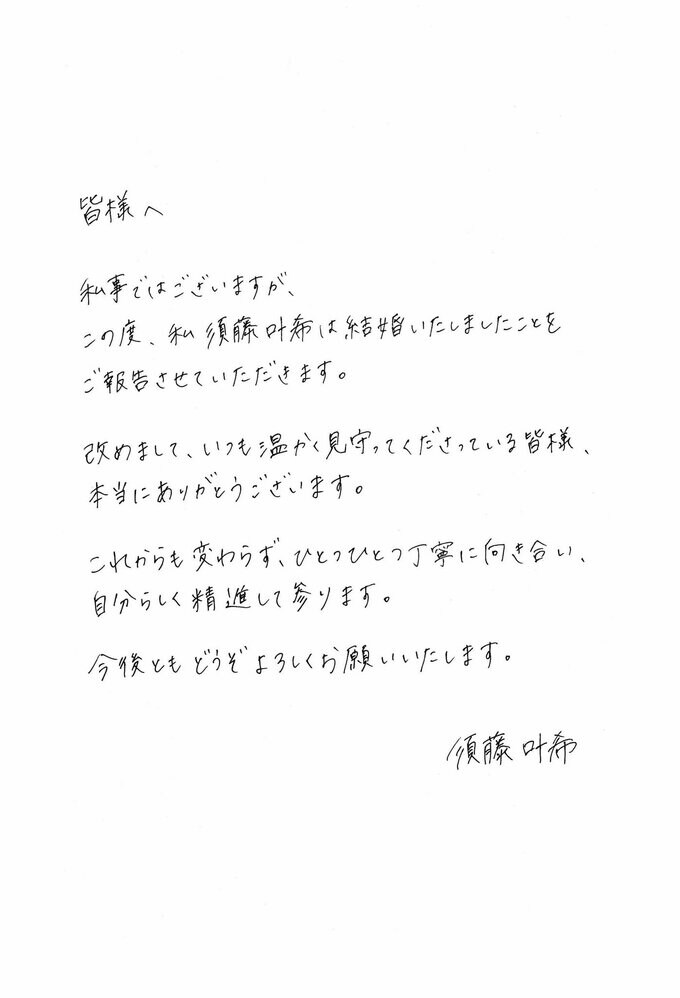 皆様へ
私事ではございますが、
この度、私 須藤叶希は結婚いたしましたことを
ご報告させていただきます。
改めまして、いつも温かく見守ってくださっている皆様、
本当にありがとうございます。
これからも変わらず、ひとつひとつ丁寧に向き合い、
自分らしく精進して参ります。
今後ともどうぞよろしくお願いいたします。
須藤叶希